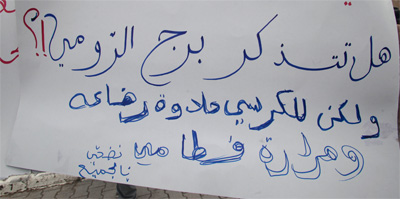 هل تتذكر برج الرومي؟!!
ولكن للكرسي حلاوة رضاعه
ومرارة فطامي نضحي
بالجميع